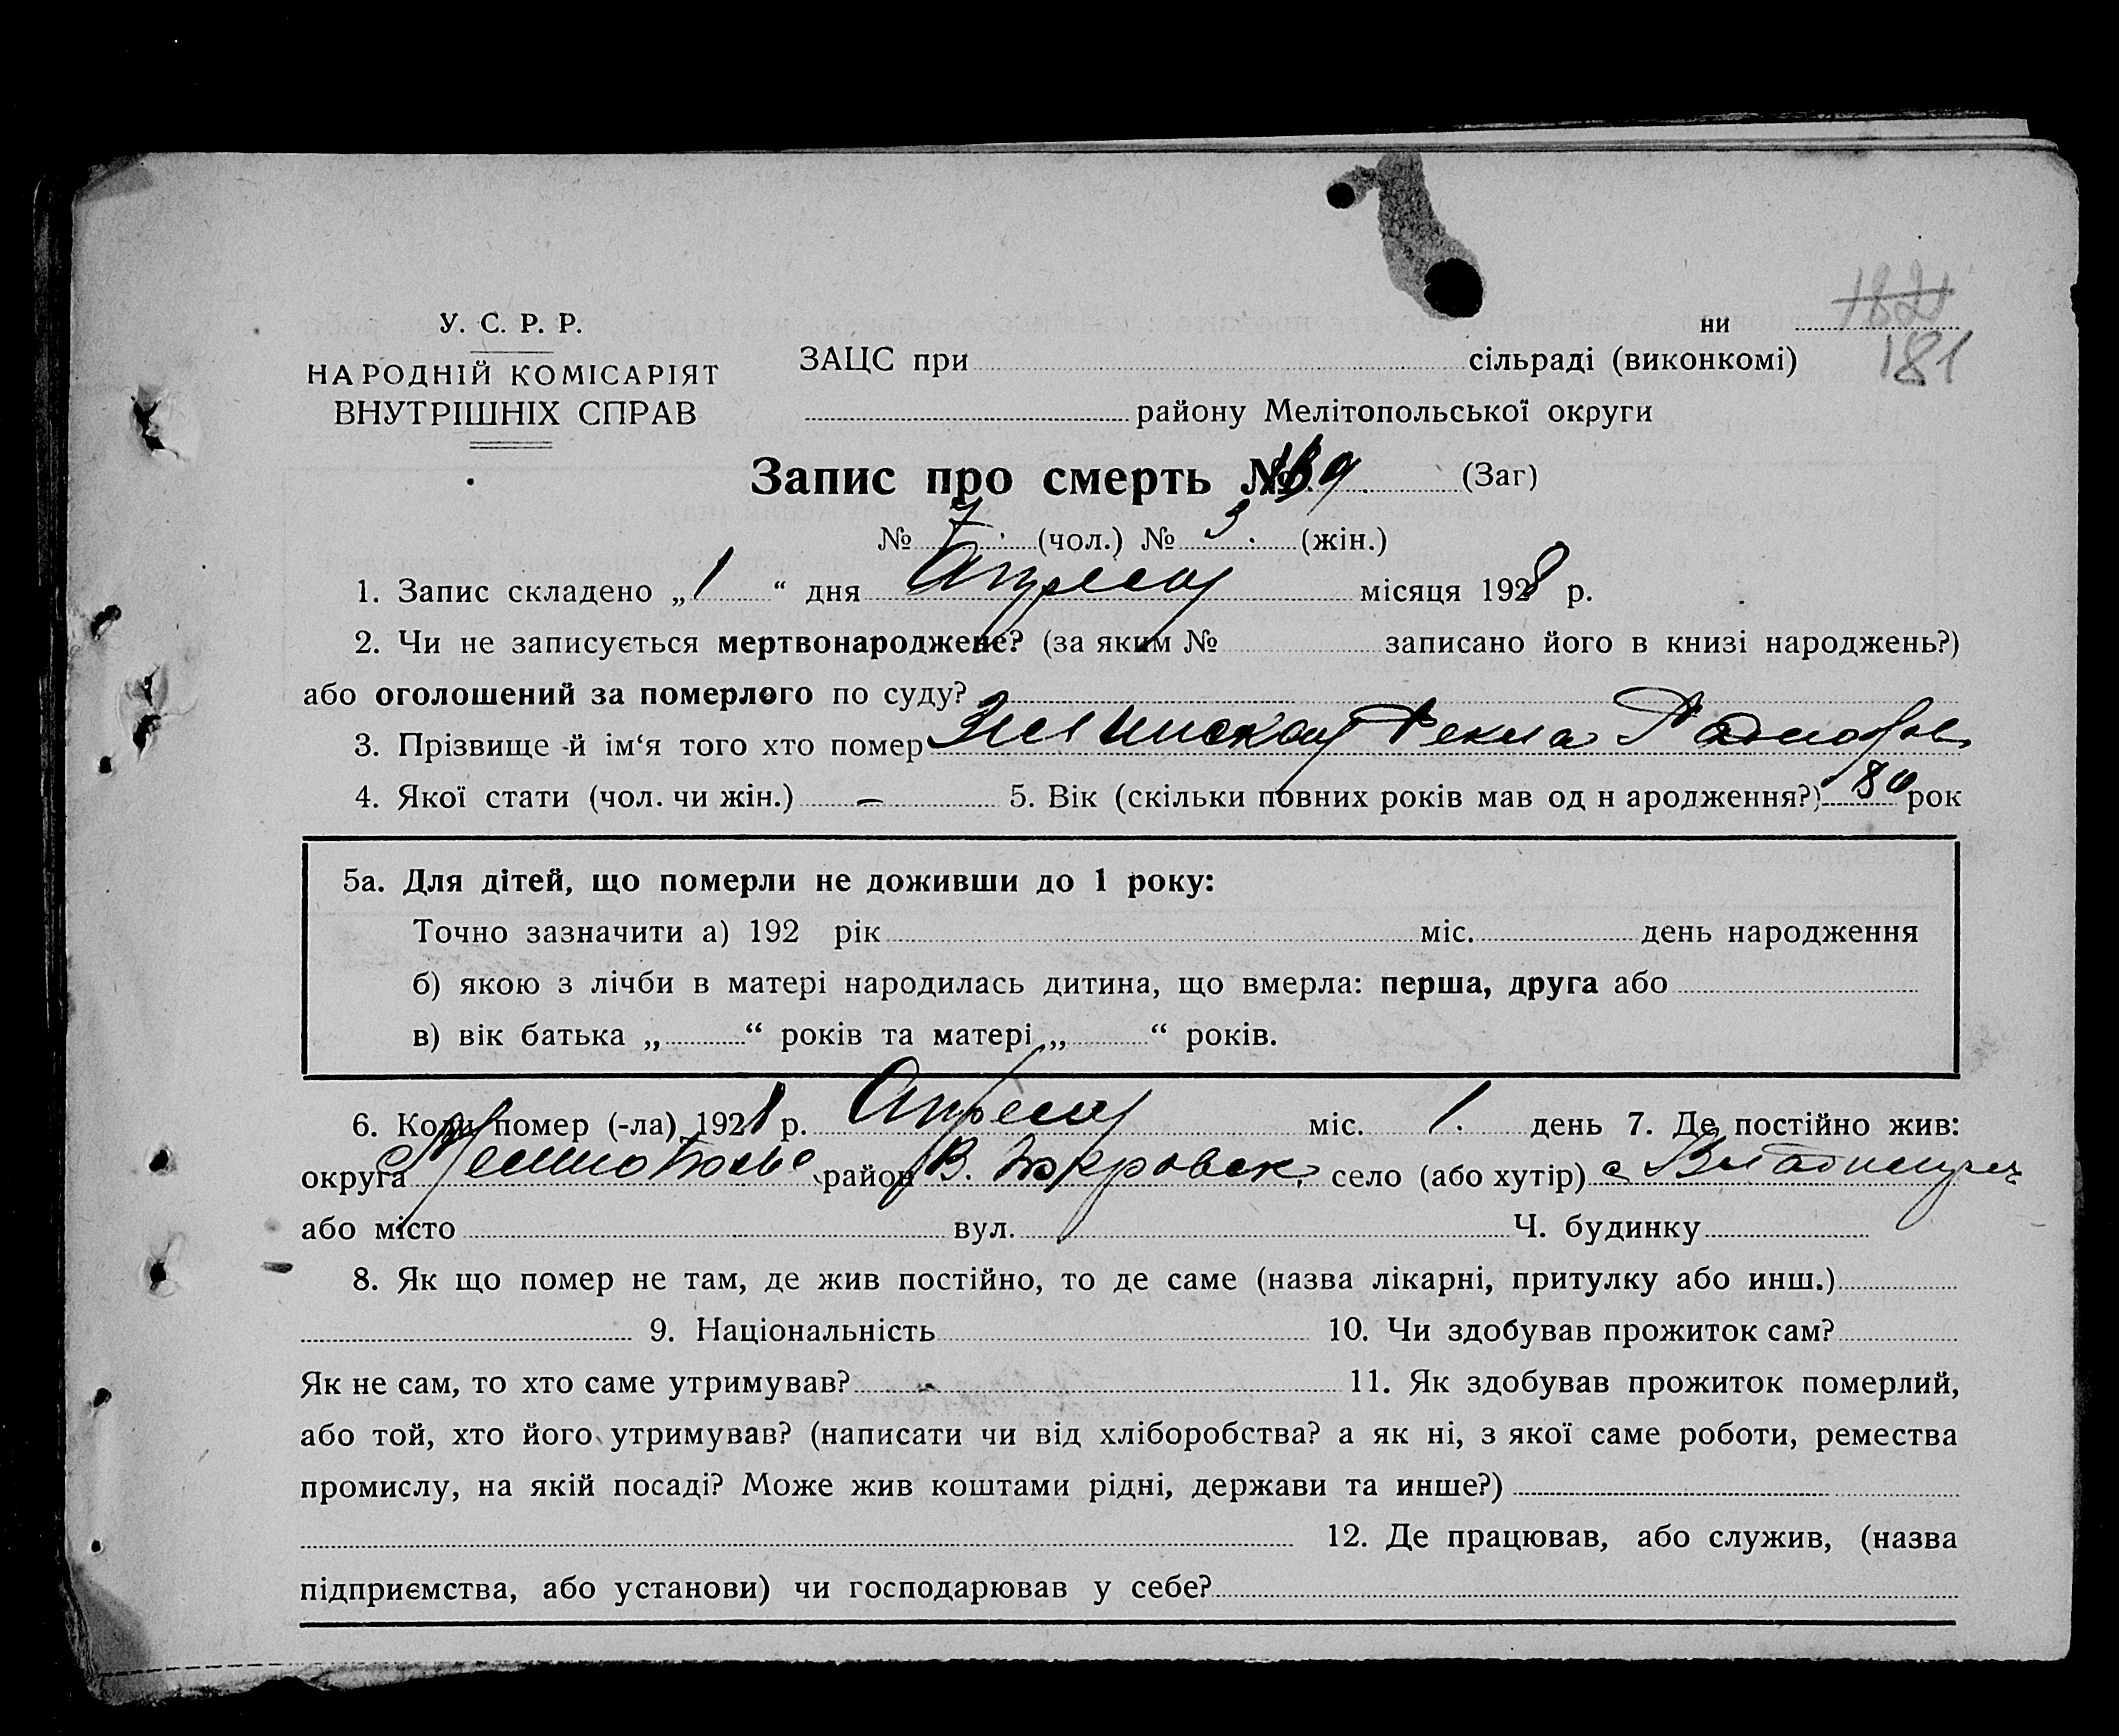 182
181
У. С. Р. Р.
НАРОДНІЙ КОМІСАРІЯТ
ВНУТРІШНІХ СПРАВ
ни
ЗАЦС при сільраді (виконкомі)
району Мелітопольської округи
Запис про смерть № (Заг)
№ 7 (чол.) № 3 (жін.)
1. Запис складено „1“ дня Апреля місяця 1928 р.
2. Чи не записується мертвонароджене? (за яким № записано його в книзі народжень?)
або оголошений за померлого по суду?
3. Прізвище -й ім‘я того хто помер Фекла
4. Якої стати (чол. чи жін.) – 5. Вік (скільки повних років мав од н ародження?) 80 рок
5а. Для дітей, що померли не доживши до 1 року:
Точно зазначити а) 192 рік міс. день народження
б) якою з лічби в матері народилась дитина, що вмерла: перша, друга або
в) вік батька „ “ років та матері „ “ років.
6. Коли помер (-ла) 1928 р. Апреля міс. 1 день 7. Де постійно жив:
округа район В. Токровск. село (або хутір) с
або місто вул. Ч. будинку
8. Як що помер не там, де жив постійно, то де саме (назва лікарні, притулку або инш.)
9. Національність 10. Чи здобував прожиток сам?
Як не сам, то хто саме утримував? 11. Як здобував прожиток померлий,
або той, хто його утримував? (написати чи від хліборобства? а як ні, з якої саме роботи, ремества
промислу, на якій посаді? Може жив коштами рідні, держави та инше?)
12. Де працював, або служив, (назва
підприємства, або установи) чи господарював у себе?